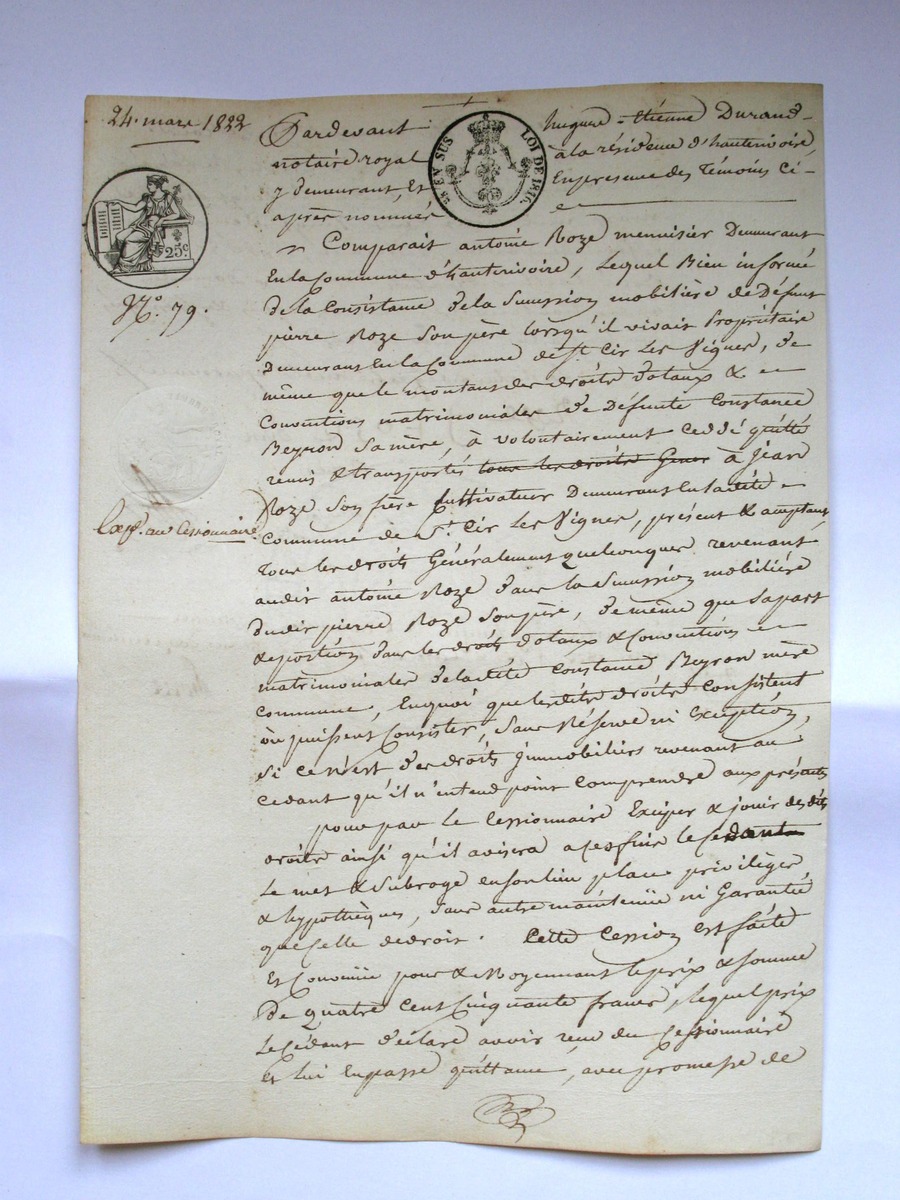 24. mars 1822
25 EN SUS
LOI DE 1816.
25c.
No. 79.
Exp. au cessionnaire
Pardevant hugues-Etienne Durand
notaire royal à la résidence d'hauterivoire,
y demeurant, Et En présence des Témoins Ci-
après nommés
Comparait antoine Roze menuisier Demeurant
En la Commune d'hauterivoire, Lequel Bien informé
de la Consistance de la Succession mobilière de Défunt
pierre Roze Son père lorsqu'il vivait Propriétaire
Demeurant En la Commune de St. Cir Les Vignes, de
même que le montant des droits dotaux &
Conventions matrimoniales de Défunte Constance
Beyron Sa mère, à volontairement ceddé quitté
remis & transportés tous les droits Gener à Jean
Roze Son frère Cultivateur Demeurant En la dite
Commune de St. Cir Les Vignes, présent & acceptant
Tous les droits Généralement quelconques revenant
audit antoine Roze dans la Succession mobilière
dudit pierre Roze Son père, de même que Sa part
& portion dans les droits dotaux & Conventions
matrimoniales de la dite Constance Beyron mère
commune, En quoi que les dits droits Consistent
ou puissent Consister, Sans Réserve ni Exception,
Si ce n'est des droits Immobiliers revenant au
cedant qu'il n'entend point comprendre aux présentes
pour par le Cessionnaire Exiger & jouir des dits
droits ainsi qu'il avisera a ces fins le cedant
Le met & Subroge en son lieu place privilèges
& hypothèques, Sans autre maintenüe ni Garantie
que Celle de droit. Cette Cession est faite
Et Convenüe pour & Moyennant le prix & somme
De quatre Cent Cinquante francs, lequel prix
Le Cédant déclare avoir reçu du Cessionnaire
et lui En passe quittance, avec promesse de